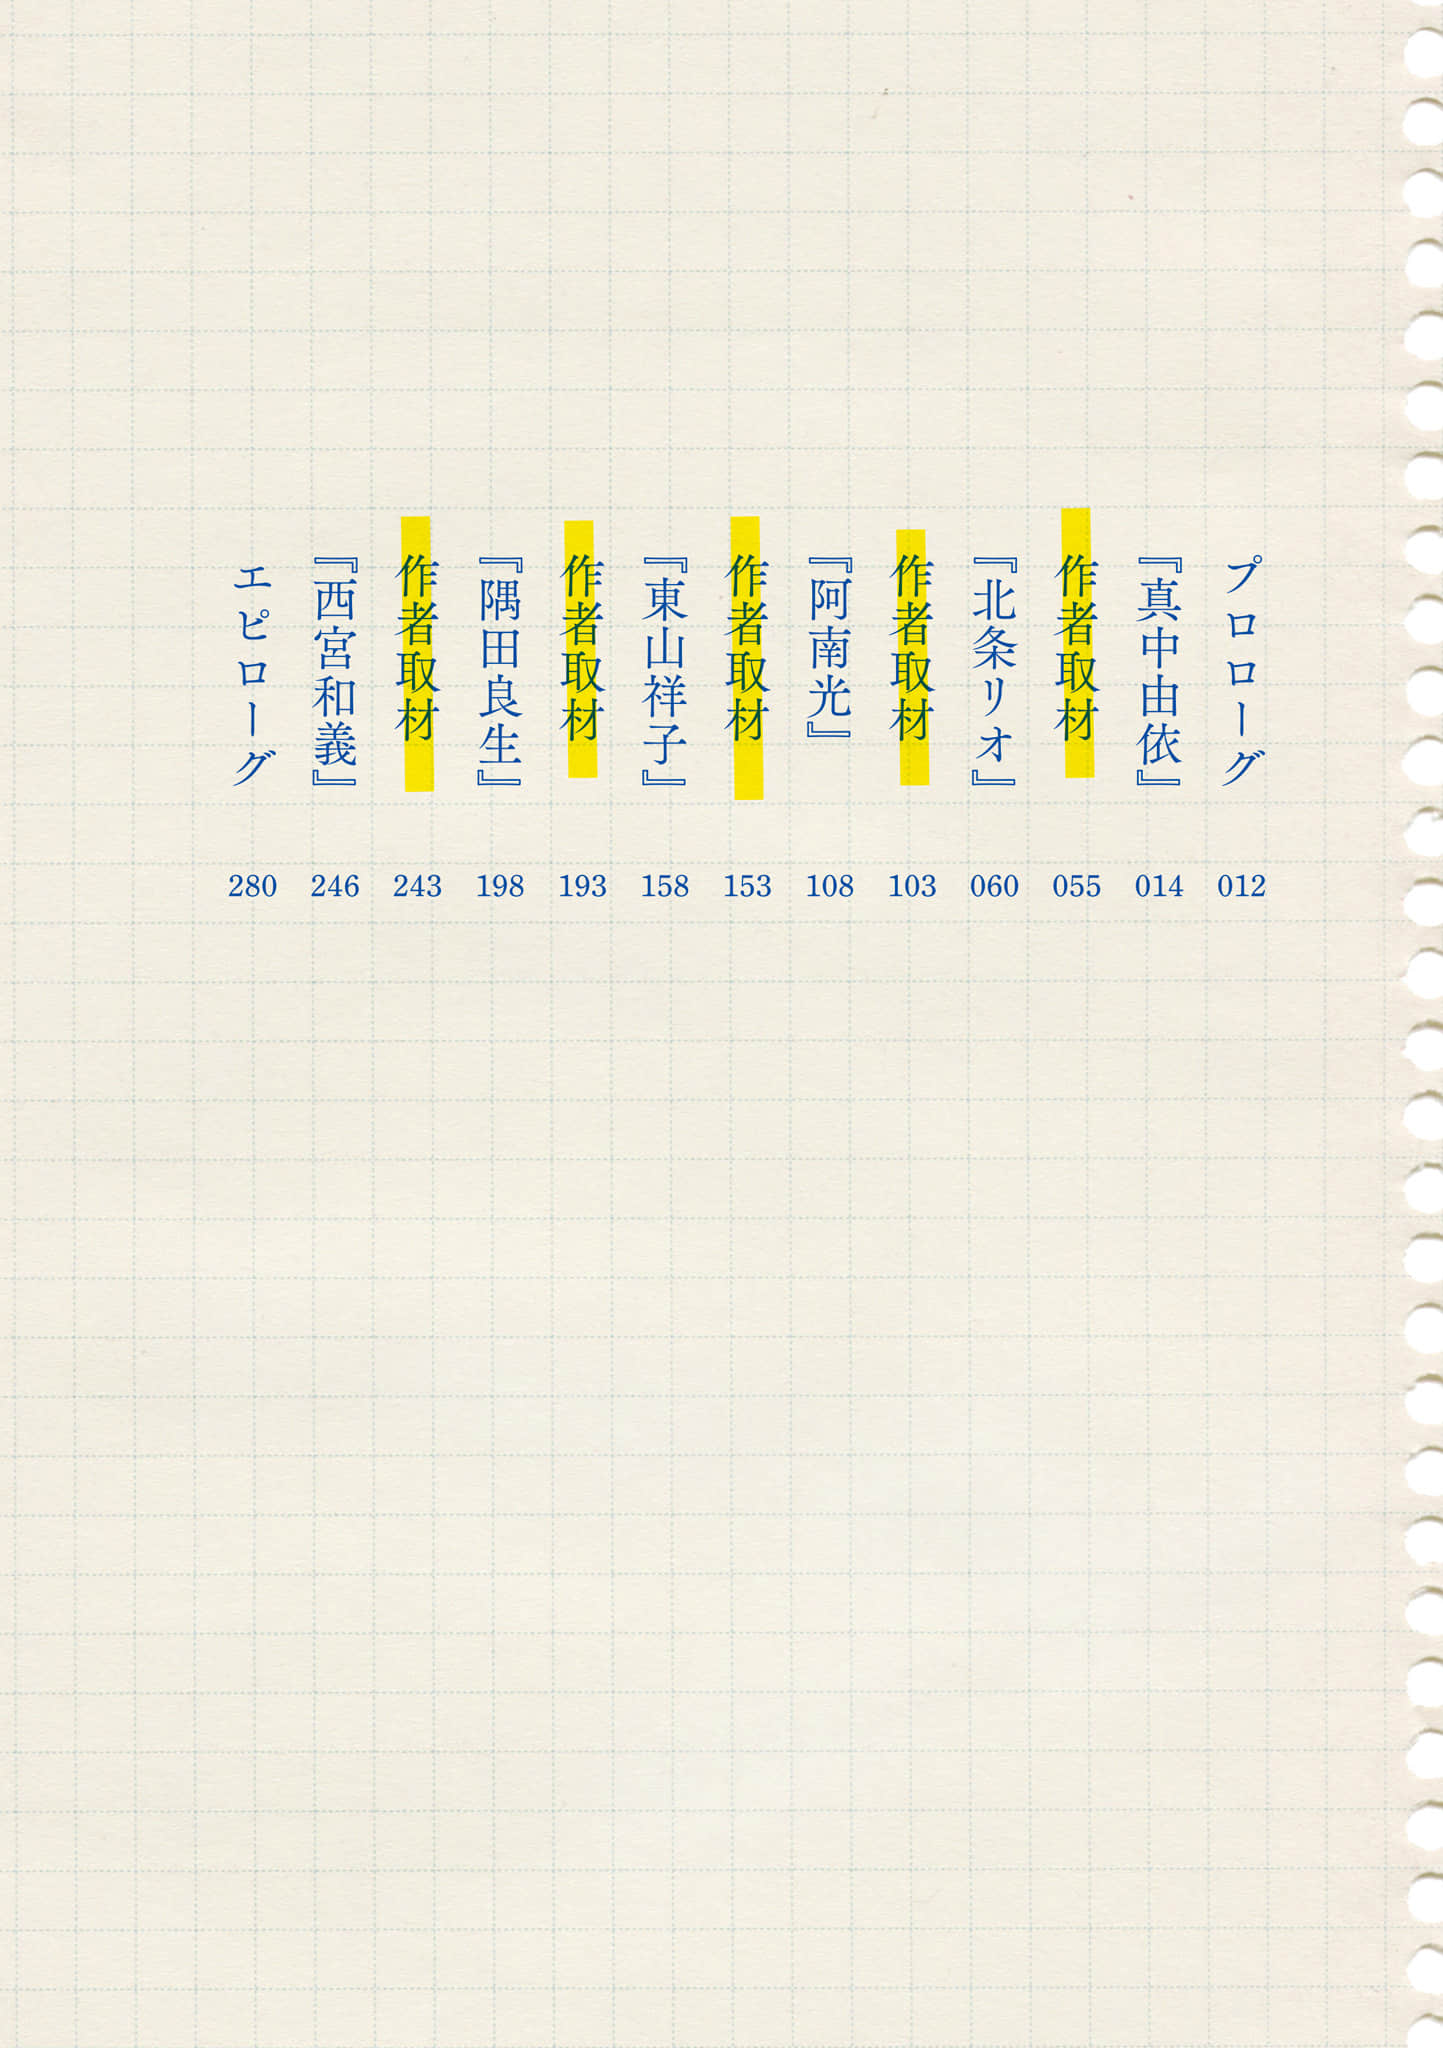 プロローグ 012
『真中由依』 014
作者取材 055
『北条リオ』 060
作者取材 103
『阿南光』 108
作者取材 153
『東山祥子』 158
作者取材 193
『隅田良生』 198
作者取材 243
『西宮和義』 246
エピローグ 280